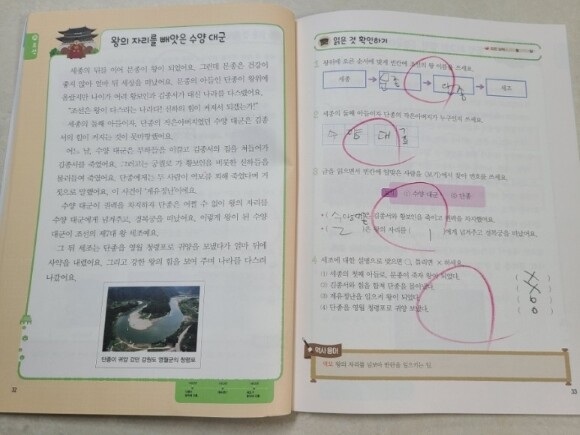 왕의 자리를 빼앗은 수양 대군
세종의 뒤를 이어 문종이 왕이 되었어요. 그런데 문종은 건강이
좋지 않아 얼마 뒤 세상을 떠났어요. 문종의 아들인 단종이 왕위에
올랐지만 나이가 어려 황보인과 김종서가 대신 나라를 다스렸어요.
"조선은 왕이 다스리는 나라다! 신하의 힘이 커져서 되겠는가!"
세종의 둘째 아들이자, 단종의 작은아버지였던 수양 대군은 김종
서의 힘이 커지는 것이 못마땅했어요.
어느 날, 수양 대군은 부하들을 이끌고 김종서의 집을 쳐들어가
김종서를 죽였어요. 그러고는 궁궐로 가 황보인을 비롯한 신하들을
불러들여 죽였어요. 단종에게는 두 사람이 역모를 꾀해 죽였다며 거
짓으로 말했어요. 이 사건이 '계유정난'이에요.
수양 대군이 권력을 차지하자 단종은 어쩔 수 없이 왕의 자리를
수양 대군에게 넘겨주고, 경복궁을 떠났어요. 이렇게 왕이 된 수양
대군이 조선의 제7대 왕 세조예요.
그 뒤 세조는 단종을 영월 청령포로 귀양을 보냈다가 얼마 뒤에
사약을 내렸어요. 그리고 강한 왕의 힘을 보여 주며 나라를 다스려
나갔어요.
단종이 귀양 갔던 강원도 영월군의 청령포
32
읽은 것 확인하기
1. 왕위에 오른 순서에 맞게 빈칸에 조선의 왕 이름을 쓰세요.
세종 문종 단종 세조
2. 세종의 둘째 아들이자 단종의 작은아버지가 누구인지 쓰세요.
수 양 대 군
3. 글을 읽으면서 빈칸에 알맞은 사람을 <보기>에서 찾아 번호를 쓰세요.
수양 대군 단종
김종서와 황보인을 죽이고 권력을 차지했어요.
은 왕의 자리를 에게 넘겨주고 경복궁을 떠났어요.
4. 세조에 대한 설명으로 맞으면 ○, 틀리면 × 하세요.
(1) 세종의 첫째 아들로, 문종이 죽자 왕이 되었다.
(2) 김종서와 힘을 합쳐 단종을 몰아냈다.
(3) 계유정난을 일으켜 왕이 되었다.
(4) 단종을 영월 청령포로 귀양 보냈다.
역사 용어
33